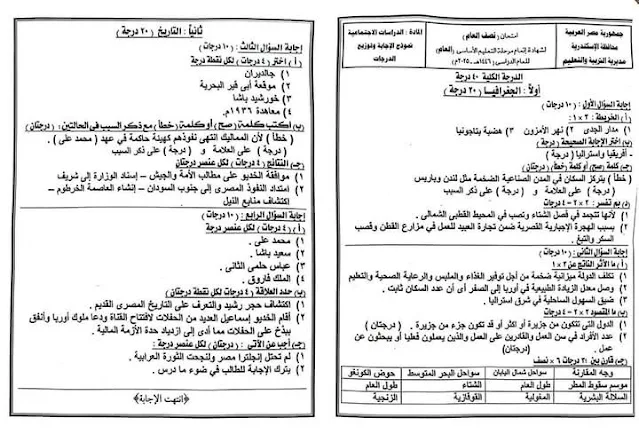 جمهورية مصر العربية
محافظة الإسكندرية
مديرية التربية والتعليم
امتحان (نصف العام)
لشهادة إتمام مرحلة التعليم الأساسى (العام)
للعام الدراسى (١٤٤٦هـ ـ ٢٠٢٥م)
المادة : الدراسات الاجتماعية
نموذج الإجابة وتوزيع
الدرجات
الدرجة الكلية ٤٠ درجة
أولاً : الجغرافيا ( ٢٠ درجة )
إجابة السؤال الأول : ( ١٠ درجات )
( أ ) الخريطة : ٢ × ١ :
١) مدار الجدى ٢) نهر الأمزون ٣) هضبة بتاجونيا
ب) اختر الإجابة الصحيحة ( درجة )
- أفريقيا واستراليا ( درجة )
جـ) كلمة (صح) أو كلمة (خطأ) :
( خطأ ) يتركز السكان في المدن الصناعية الضخمة مثل لندن وباريس
( درجة ) على العلامة و ( درجة ) على ذكر السبب
( د ) بم تفسر : ٢ × ٢ = ٤ درجات
١) لأنها تتجمد في فصل الشتاء وتصب في المحيط القطبى الشمالى .
٢) بسبب الهجرة الإجبارية القصرية ضمن تجارة العبيد للعمل في مزارع القطن وقصب
السكر والتبغ .
إجابة السؤال الثانى : ( ١٠ درجات )
( أ ) ما الأثر الناتج عن ٢ × ١
١) تكلف الدولة ميزانية ضخمة من أجل توفير الغذاء والملبس والرعاية الصحية والتعليم
٢) وصل معدل الزيادة الطبيعية في أوربا إلى الصفر أى أن عدد السكان ثابت .
٣) ضيق السهول الساحلية في شرق استراليا .
ب) ما المقصود ٢ × ٢ = ٤ درجات
١) الدول التى تتكون من جزيرة أو أكثر أو قد تكون جزء من جزيرة . ( درجتان )
٢) عدد الأفراد في سن العمل والقادرين على العمل والذين يعملون فعلياً أو يبحثون عن
عمل . (درجتان)
جـ) قارن بين : ٣ درجات ٦ × نصف
وجه المقارنة سواحل شمال اليابان سواحل البحر المتوسط حوض الكونغو
موسم سقوط المطر طول العام الشتاء طول العام
السلالة البشرية المغولية القوقازية الزنجية
ثانياً : التاريخ ( ٢٠ درجة )
إجابة السؤال الثالث : ( ١٠ درجات )
( أ ) اختر ( ٤ درجات ) لكل نقطة درجة
١) جالديران
٢) موقعة أبى قير البحرية
٣) خورشيد باشا
٤) معاهدة ١٩٣٦م
(ب) اكتب كلمة ( صح ) أو كلمة ( خطأ ) مع ذكر السبب فى الحالتين : ( درجتان )
( خطأ ) لأن المماليك انتهى نفوذهم كهيئة حاكمة فى عهد ( محمد على ) .
( درجة ) على العلامة و ( درجة ) على ذكر السبب
(جـ) النتائج ( ٤ درجات ) لكل عنصر درجتان
١) موافقة الخديو على مطالب الأمة والجيش – إسناد الوزارة إلى شريف
٢) امتداد النفوذ المصرى إلى جنوب السودان – إنشاء العاصمة الخرطوم –
اكتشاف منابع النيل
إجابة السؤال الرابع : ( ١٠ درجات )
( أ ) ( ٤ درجات ) لكل عنصر درجة
١) محمد على .
٢) سعيد باشا .
٣) عباس حلمى الثانى .
٤) الملك فاروق .
(ب) حدد العلاقة ( ٤ درجات ) لكل نقطة درجتان
١) اكتشاف حجر رشيد والتعرف على التاريخ المصرى القديم .
٢) أقام الخديو إسماعيل العديد من الحفلات لافتتاح القناة ودعا ملوك أوربا وأنفق
ببذخ على الحفلات مما أدى إلى ازدياد حدة الأزمة المالية .
(جـ) أجب عن الآتى : ( درجتان ) لكل عنصر درجة :
١) لم تحتل إنجلترا مصر ولنجحت الثورة العرابية .
٢) يترك الإجابة للطالب فى ضوء ما درس .
﴿انتهت الإجابة﴾